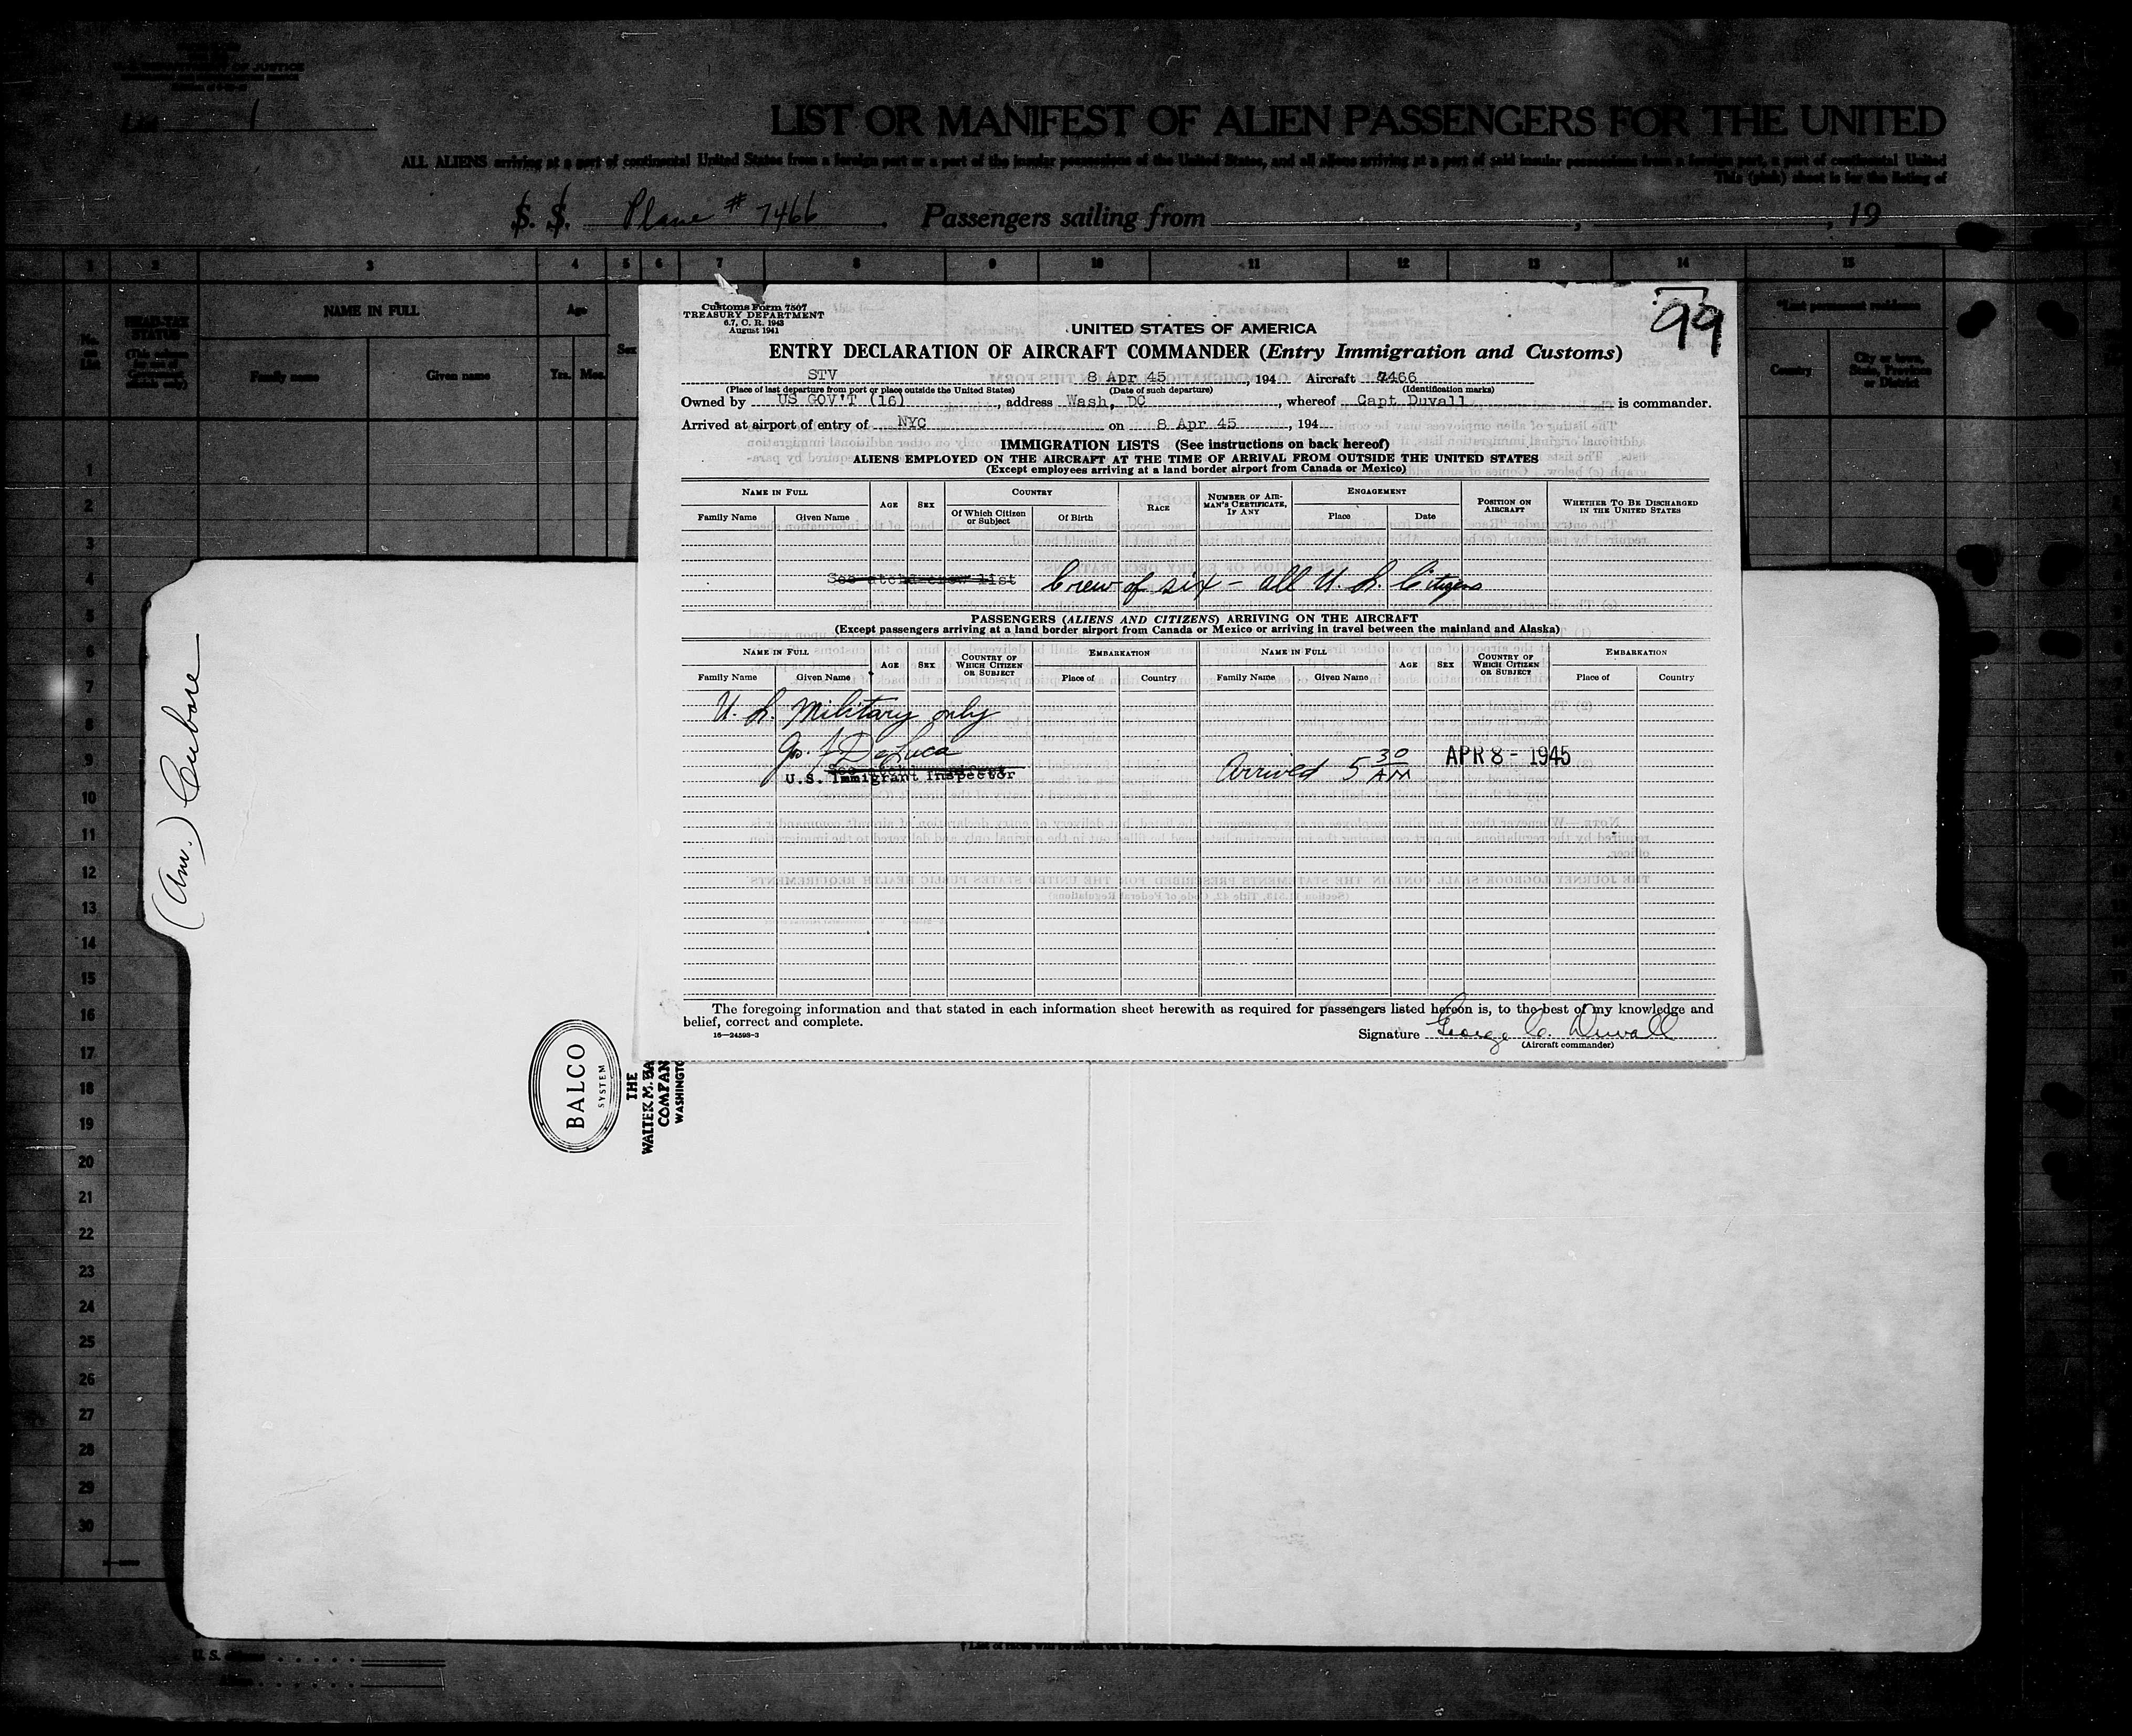 OF JUSTICE
List 1
LIST OR MANIFEST OF ALIEN PASSENGERS FOR THE UNITED
ALL ALIENS arriving at a port of continental United States from a foreign port or a port of the insular possessions of the United States, and all aliens arriving at a port of said insular possessions from a foreign port, a port of continental United
This (pink) sheet is for the listing of
S. S. Plane # 7466 Passengers sailing from , , 19
1 2 3 4 5 6 7 8 9 10 11 12 13 14 15
No. on List
HEAD-TAX STATUS
NAME IN FULL
Age
Sex
Family name Given name Yrs. Mos.
*Last permanent residence
Country City or town, State, Province or District
Customs Form 7507
TREASURY DEPARTMENT
6.7, C. R. 1943
August 1941
99
UNITED STATES OF AMERICA
ENTRY DECLARATION OF AIRCRAFT COMMANDER (Entry Immigration and Customs)
STV 8 Apr 45, 194 Aircraft 7466
(Place of last departure from port or place outside the United States) (Date of such departure) (Identification marks)
Owned by US GOV'T (16), address Wash, DC, whereof Capt Duvall is commander.
Arrived at airport of entry of NYC on 8 Apr 45, 194
IMMIGRATION LISTS (See instructions on back hereof)
ALIENS EMPLOYED ON THE AIRCRAFT AT THE TIME OF ARRIVAL FROM OUTSIDE THE UNITED STATES
(Except employees arriving at a land border airport from Canada or Mexico)
NAME IN FULL AGE SEX COUNTRY RACE NUMBER OF AIRMAN'S CERTIFICATE, IF ANY ENGAGEMENT POSITION ON AIRCRAFT WHETHER TO BE DISCHARGED IN THE UNITED STATES
Family Name Given Name Of Which Citizen or Subject Of Birth Place Date
See atchd crew list Crew of six - all U. S. Citizens
PASSENGERS (ALIENS AND CITIZENS) ARRIVING ON THE AIRCRAFT
(Except passengers arriving at a land border airport from Canada or Mexico or arriving in travel between the mainland and Alaska)
NAME IN FULL AGE SEX COUNTRY OF WHICH CITIZEN OR SUBJECT EMBARKATION NAME IN FULL AGE SEX COUNTRY OF WHICH CITIZEN OR SUBJECT EMBARKATION
Family Name Given Name Place of Country Family Name Given Name Place of Country
U. S. Military only
DeLuca
U.S. Immigrant Inspector
Arrived 5 30 AM APR 8 - 1945
The foregoing information and that stated in each information sheet herewith as required for passengers listed hereon is, to the best of my knowledge and
belief, correct and complete.
16—24598-3
Signature George C. Duvall
(Aircraft commander)
BALCO
SYSTEM
THE
WALTER M. BA
COMPAN
WASHINGTO
1
2
3
4
5
6
7
8
9
10
11
12
13
14
15
16
17
18
19
20
21
22
23
24
25
26
27
28
29
30
U. S. citizens